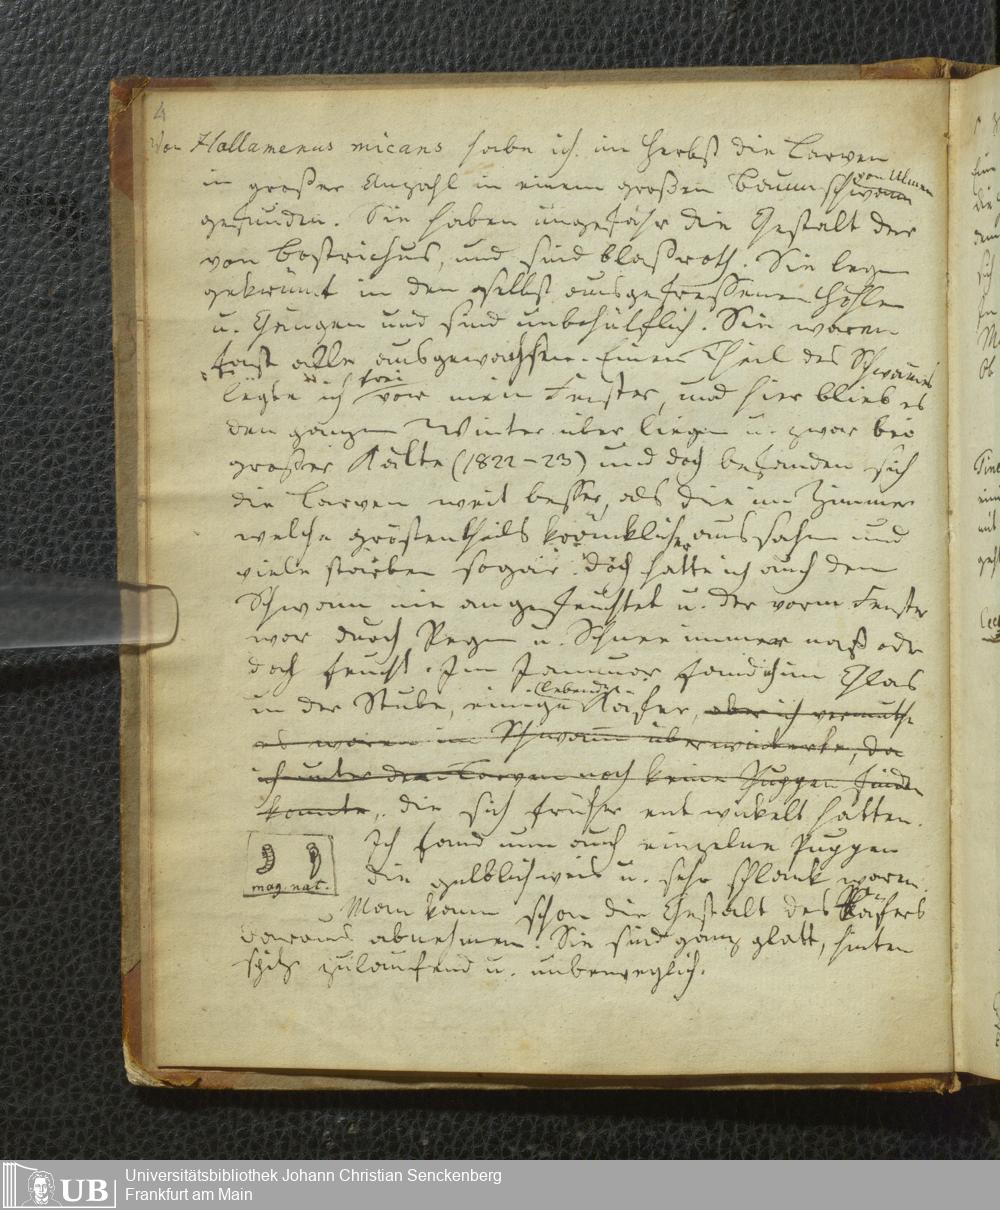 4
Von Hallamenus micans habe ich im Herbst die Larven
in großer Anzahl in einem großen Baumschwamm von Ulmen
gefunden. Sie haben ungefähr die Gestalt der
von Bostrichus, und sind blaßroth. Sie legen
gekrümt in den selbst ausgefressenen Höhlen
u. Gängen und sind unbehülflich. Sie waren
fast alle ausgewachsen. Einen Theil des Schwames
legte ich frei vor mein Fenster, und hier blieb es
den ganzen Winter über liegen u. zwar bei
großer Kälte (1822-23) und doch befanden sich
die Larven weit besser, als die im Zimmer
welche gröstentheils kräncklicher aussahen und
viele starben sogar. Doch hatte ich auch den
Schwamm nie angefeuchtet u. der vorm Fenster
war durch Regen u. Schnee immer naß oder
doch feucht. Im Januar fand ich im Glas
in der Stube, einige lebende Käfer, aber ich vermuthe
es waren im Schwamm überwinterte, da
ich unter den Larven noch keine Puppen finden
konnte, die sich früher entwickelt hatten.
Ich fand nun auch einzelne Puppen
die gelblichweis u. sehr schlank waren.
mag. nat.
Man kann schon die Gestalt des Käfers
daraus abnehmen. Sie sind ganz glatt, hinten
spitz zulaufend u. unbeweglich.
UB
Universitätsbibliothek Johann Christian Senckenberg
Frankfurt am Main